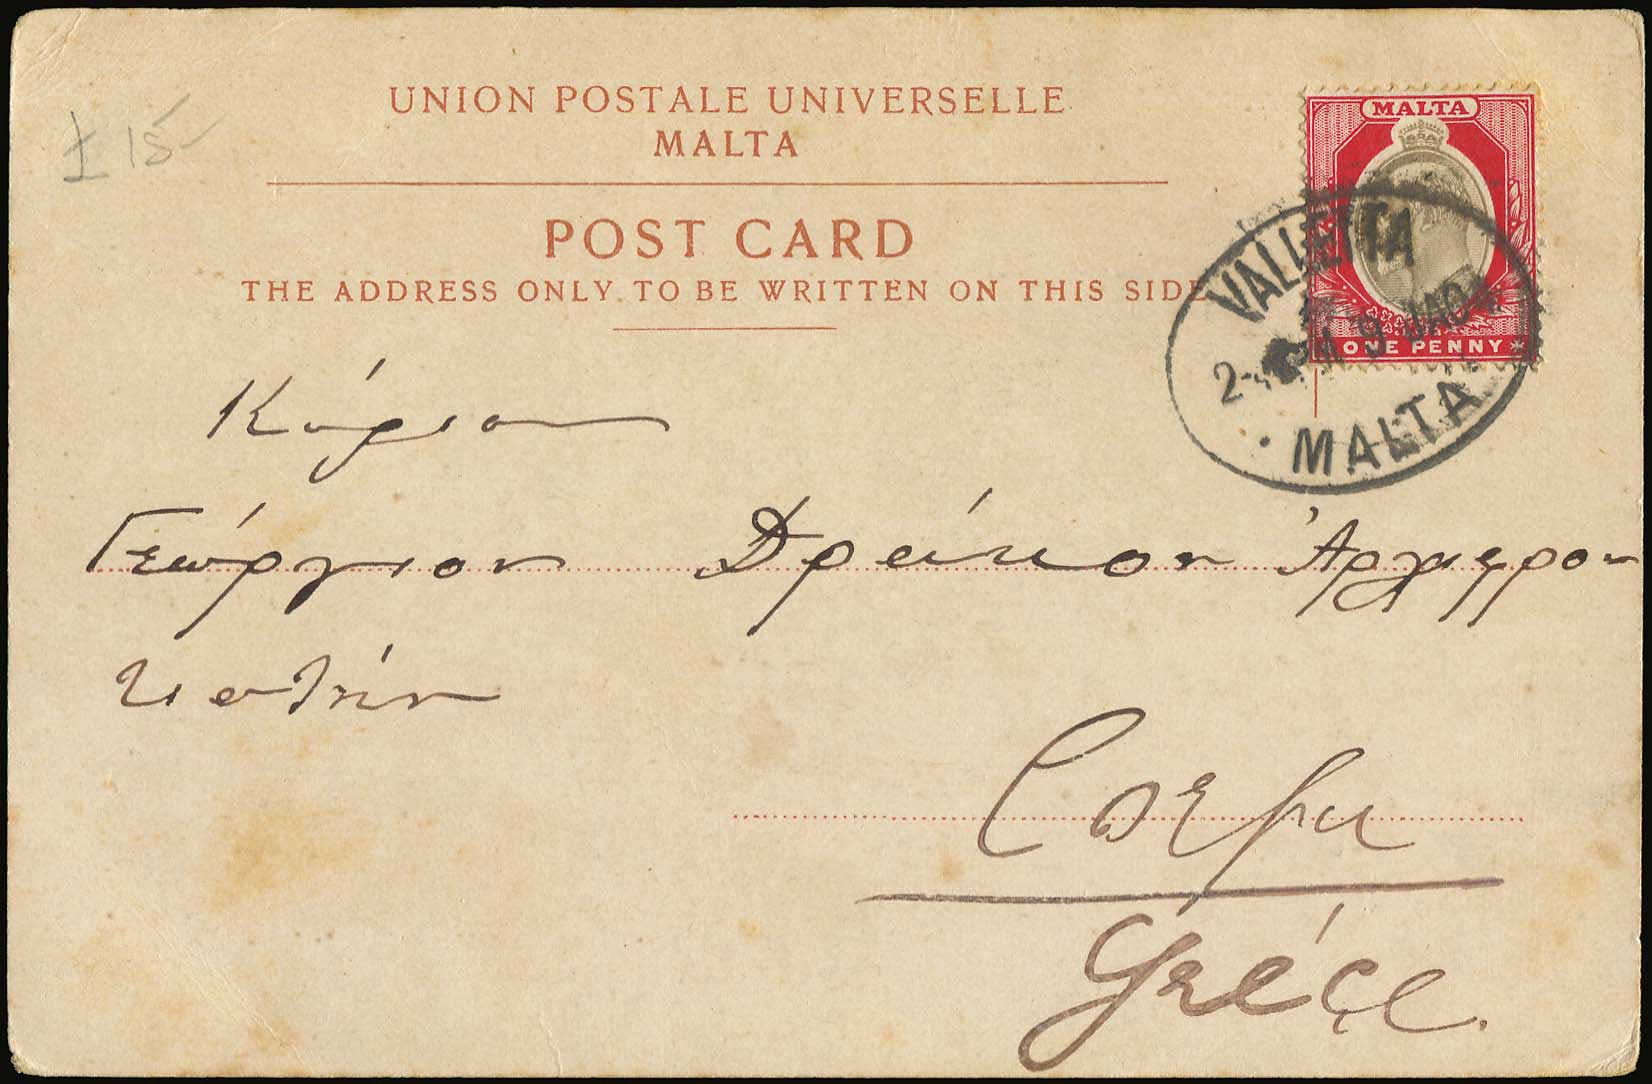 UNION POSTALE UNIVERSELLE
MALTA
POST CARD
THE ADDRESS ONLY TO BE WRITTEN ON THIS SIDE
£ 15-
MALTA
ONE PENNY
VALLETTA
MALTA
Κύριον
Γεώργιον Δράκον
Corfu
Gréce.